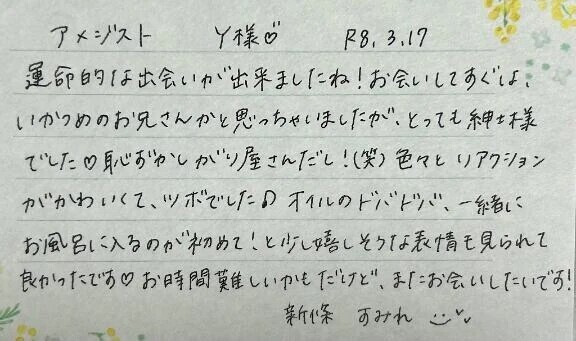 アメジスト Y様♡ R8.3.17
運命的な出会いが出来ましたね！お会いしてすぐは、
いかつめのお兄さんかと思っちゃいましたが、とっても紳士様
でした♡恥ずかしがり屋さんだし！(笑)色々とリアクション
がかわいくて、ツボでした♪オイルのドバドバ、一緒に
お風呂に入るのが初めて！と少し嬉しそうな表情も見られて
良かったです♡お時間難しいかもだけど、またお会いしたいです！
新條 すみれ